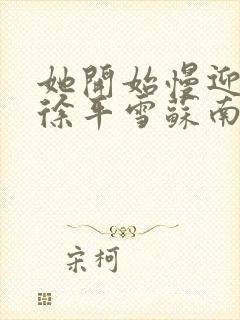 她開始慢迎
徐平雪蘇南
宋柯